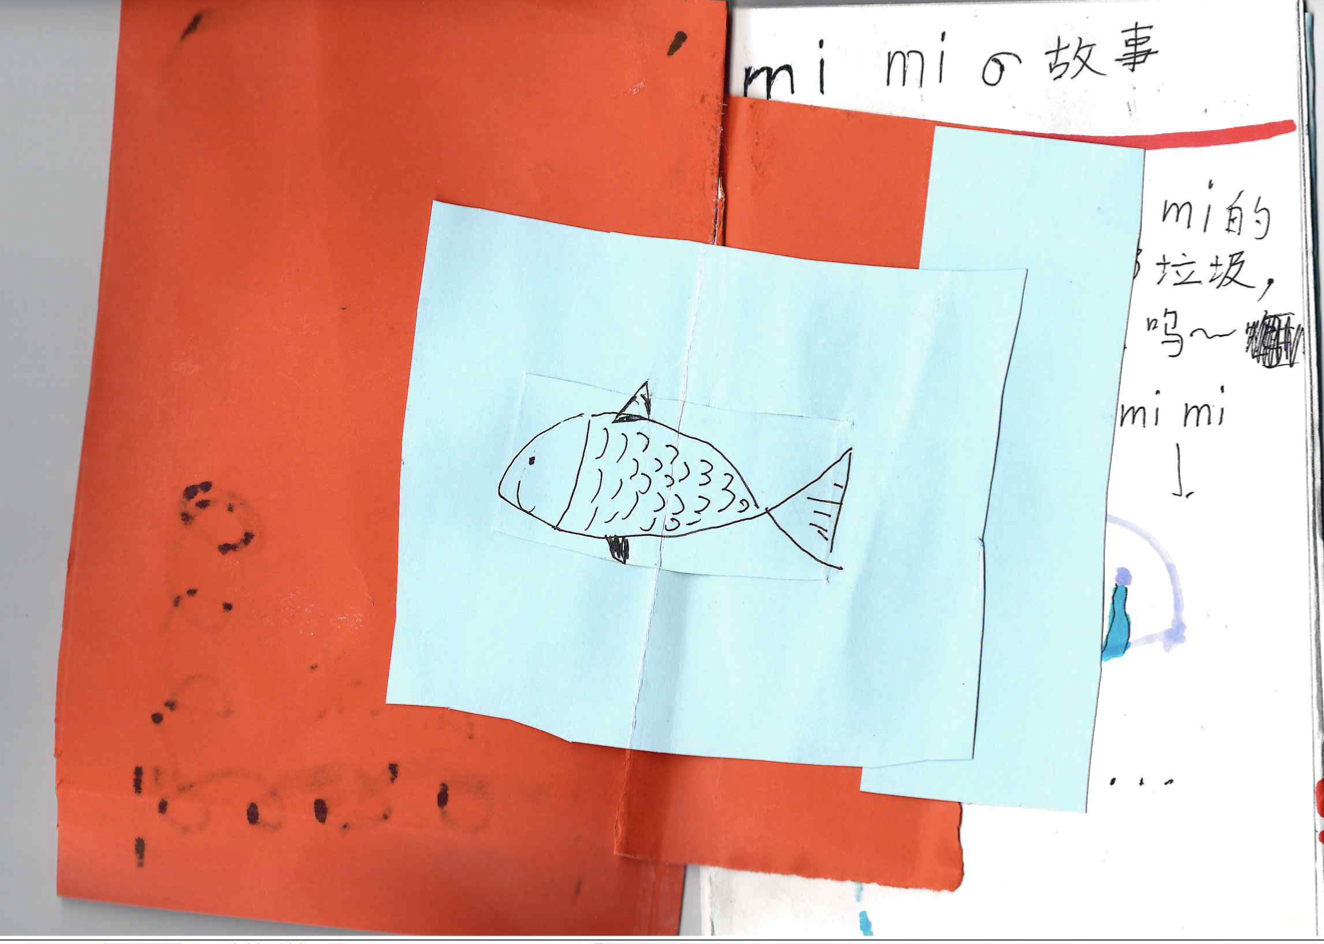 mi mi の 故事
mi的
垃圾，
呜～
mi mi